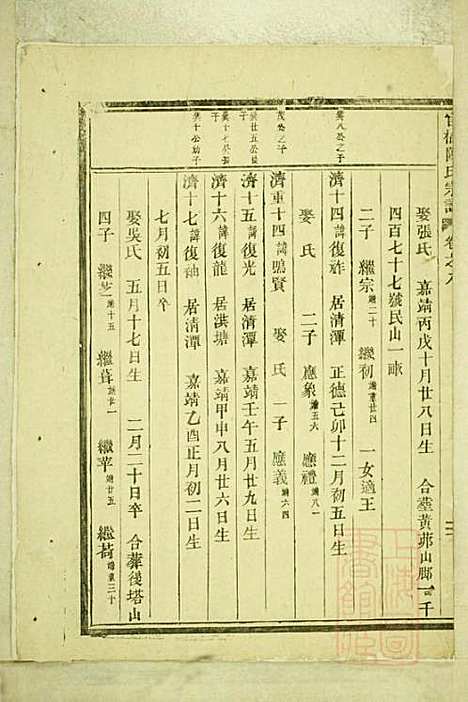 娶張氏 嘉靖丙戌十月廿八日生 合塟黃茆山郎一千
四百七十七號民山一畝
二子 繼宗 繼初 一女適王
癸八公之子
濟十四 諱復祚 居清潭 正德己卯十二月初五日生
娶 氏 二子 應象 應禮
茂公之子
濟重十四 諱鳴賢 娶 氏 一子 應義
癸廿五公繼子
濟十五 諱復光 居清潭 嘉靖壬午五月廿九日生
濟十六 諱復龍 居洪塘 嘉靖甲申八月廿六日生
癸十公幼子
濟十七 諱復䄂 居清潭 嘉靖乙酉正月初二日生
七月初五日卒
娶吳氏 五月十七日生 二月二十日卒 合葬後塔山
四子 繼芝 繼葺 繼苹 繼荷